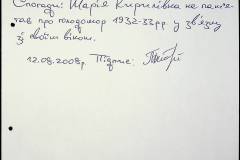 Спогади: Марія Кирилівна не пам'я-
тає про голодомор 1932-33рр у зв'язку
зі своїм віком.
12.08.2008р. Підпис: